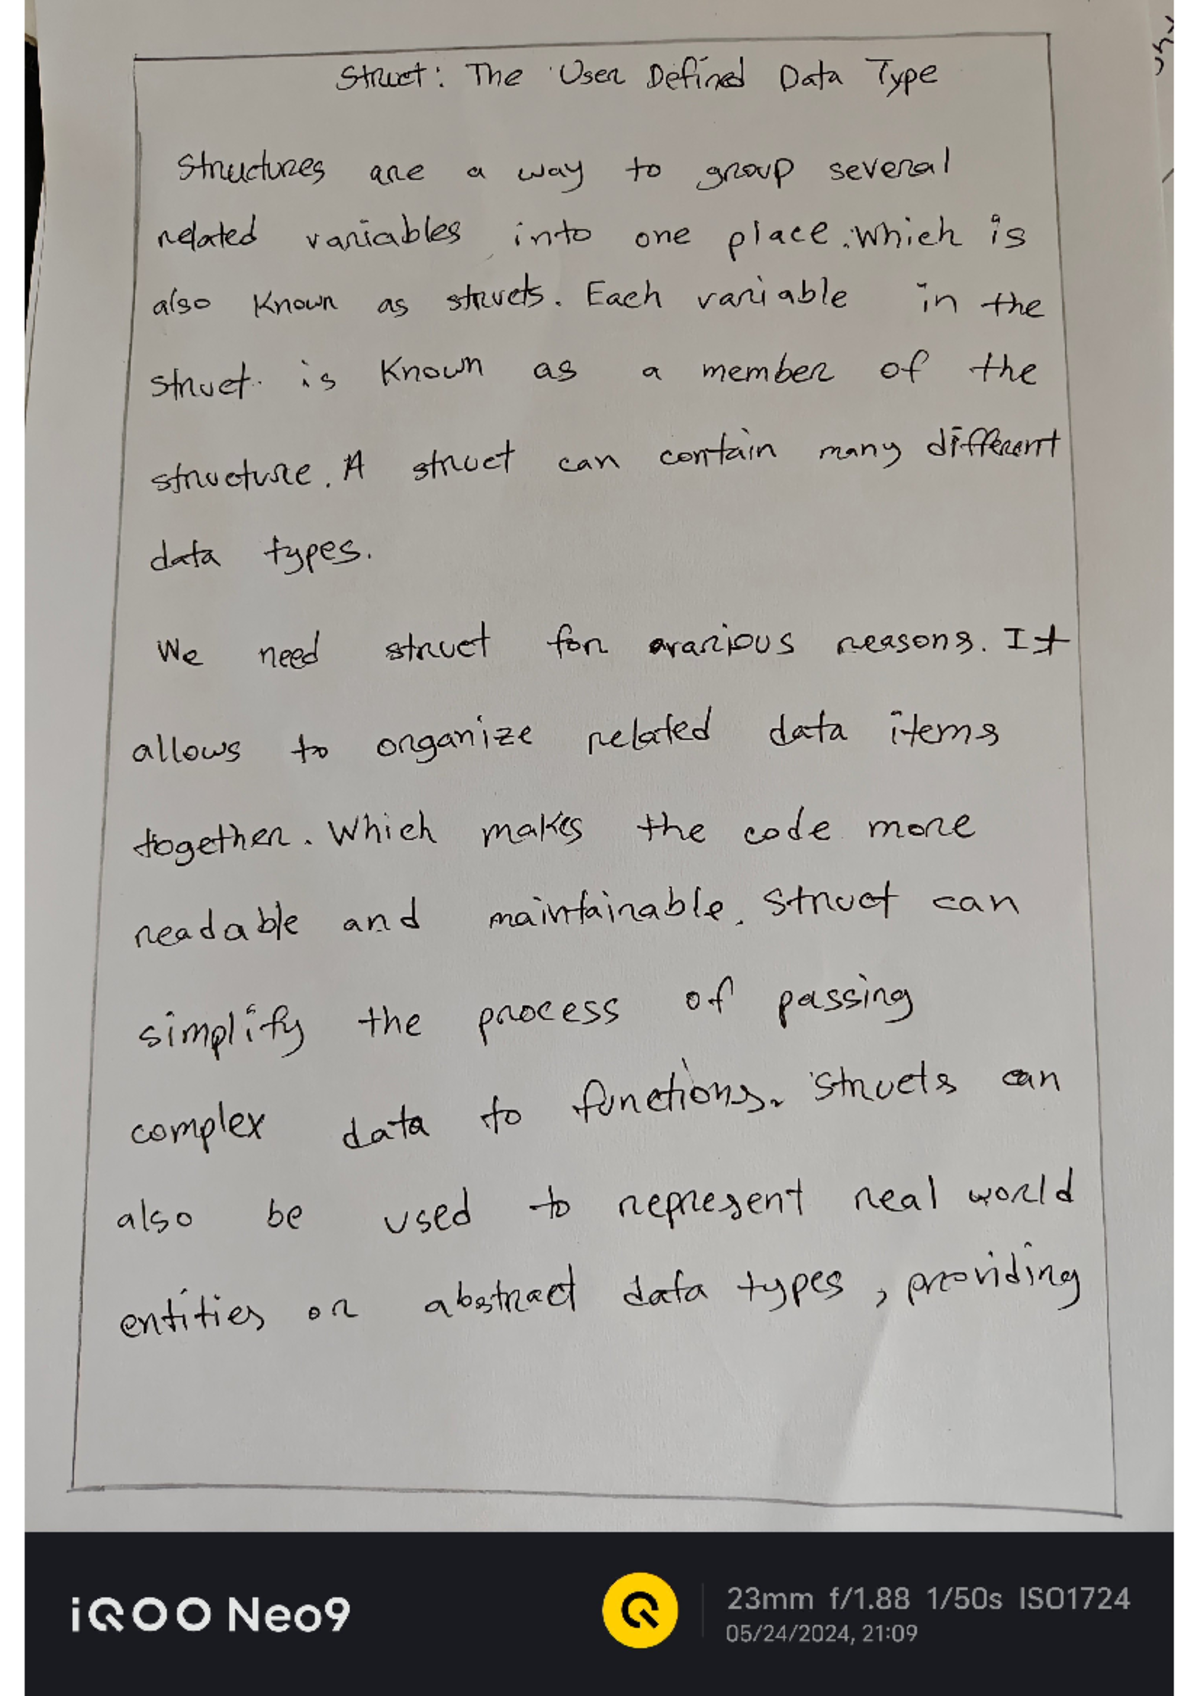 Struct: The User Defined Data Type
Structures are a way to group several
related variables into one place. Which is
also Known as structs. Each variable in the
struct is Known as a member of the
structure. A struct can contain many different
data types.
We need struct for various reasons. It
allows to organize related data items
together. Which makes the code more
readable and maintainable. Struct can
simplify the process of passing
complex data to functions. Structs can
also be used to represent real world
entities or abstract data types, providing
iQOO Neo9
23mm f/1.88 1/50s ISO1724
05/24/2024, 21:09